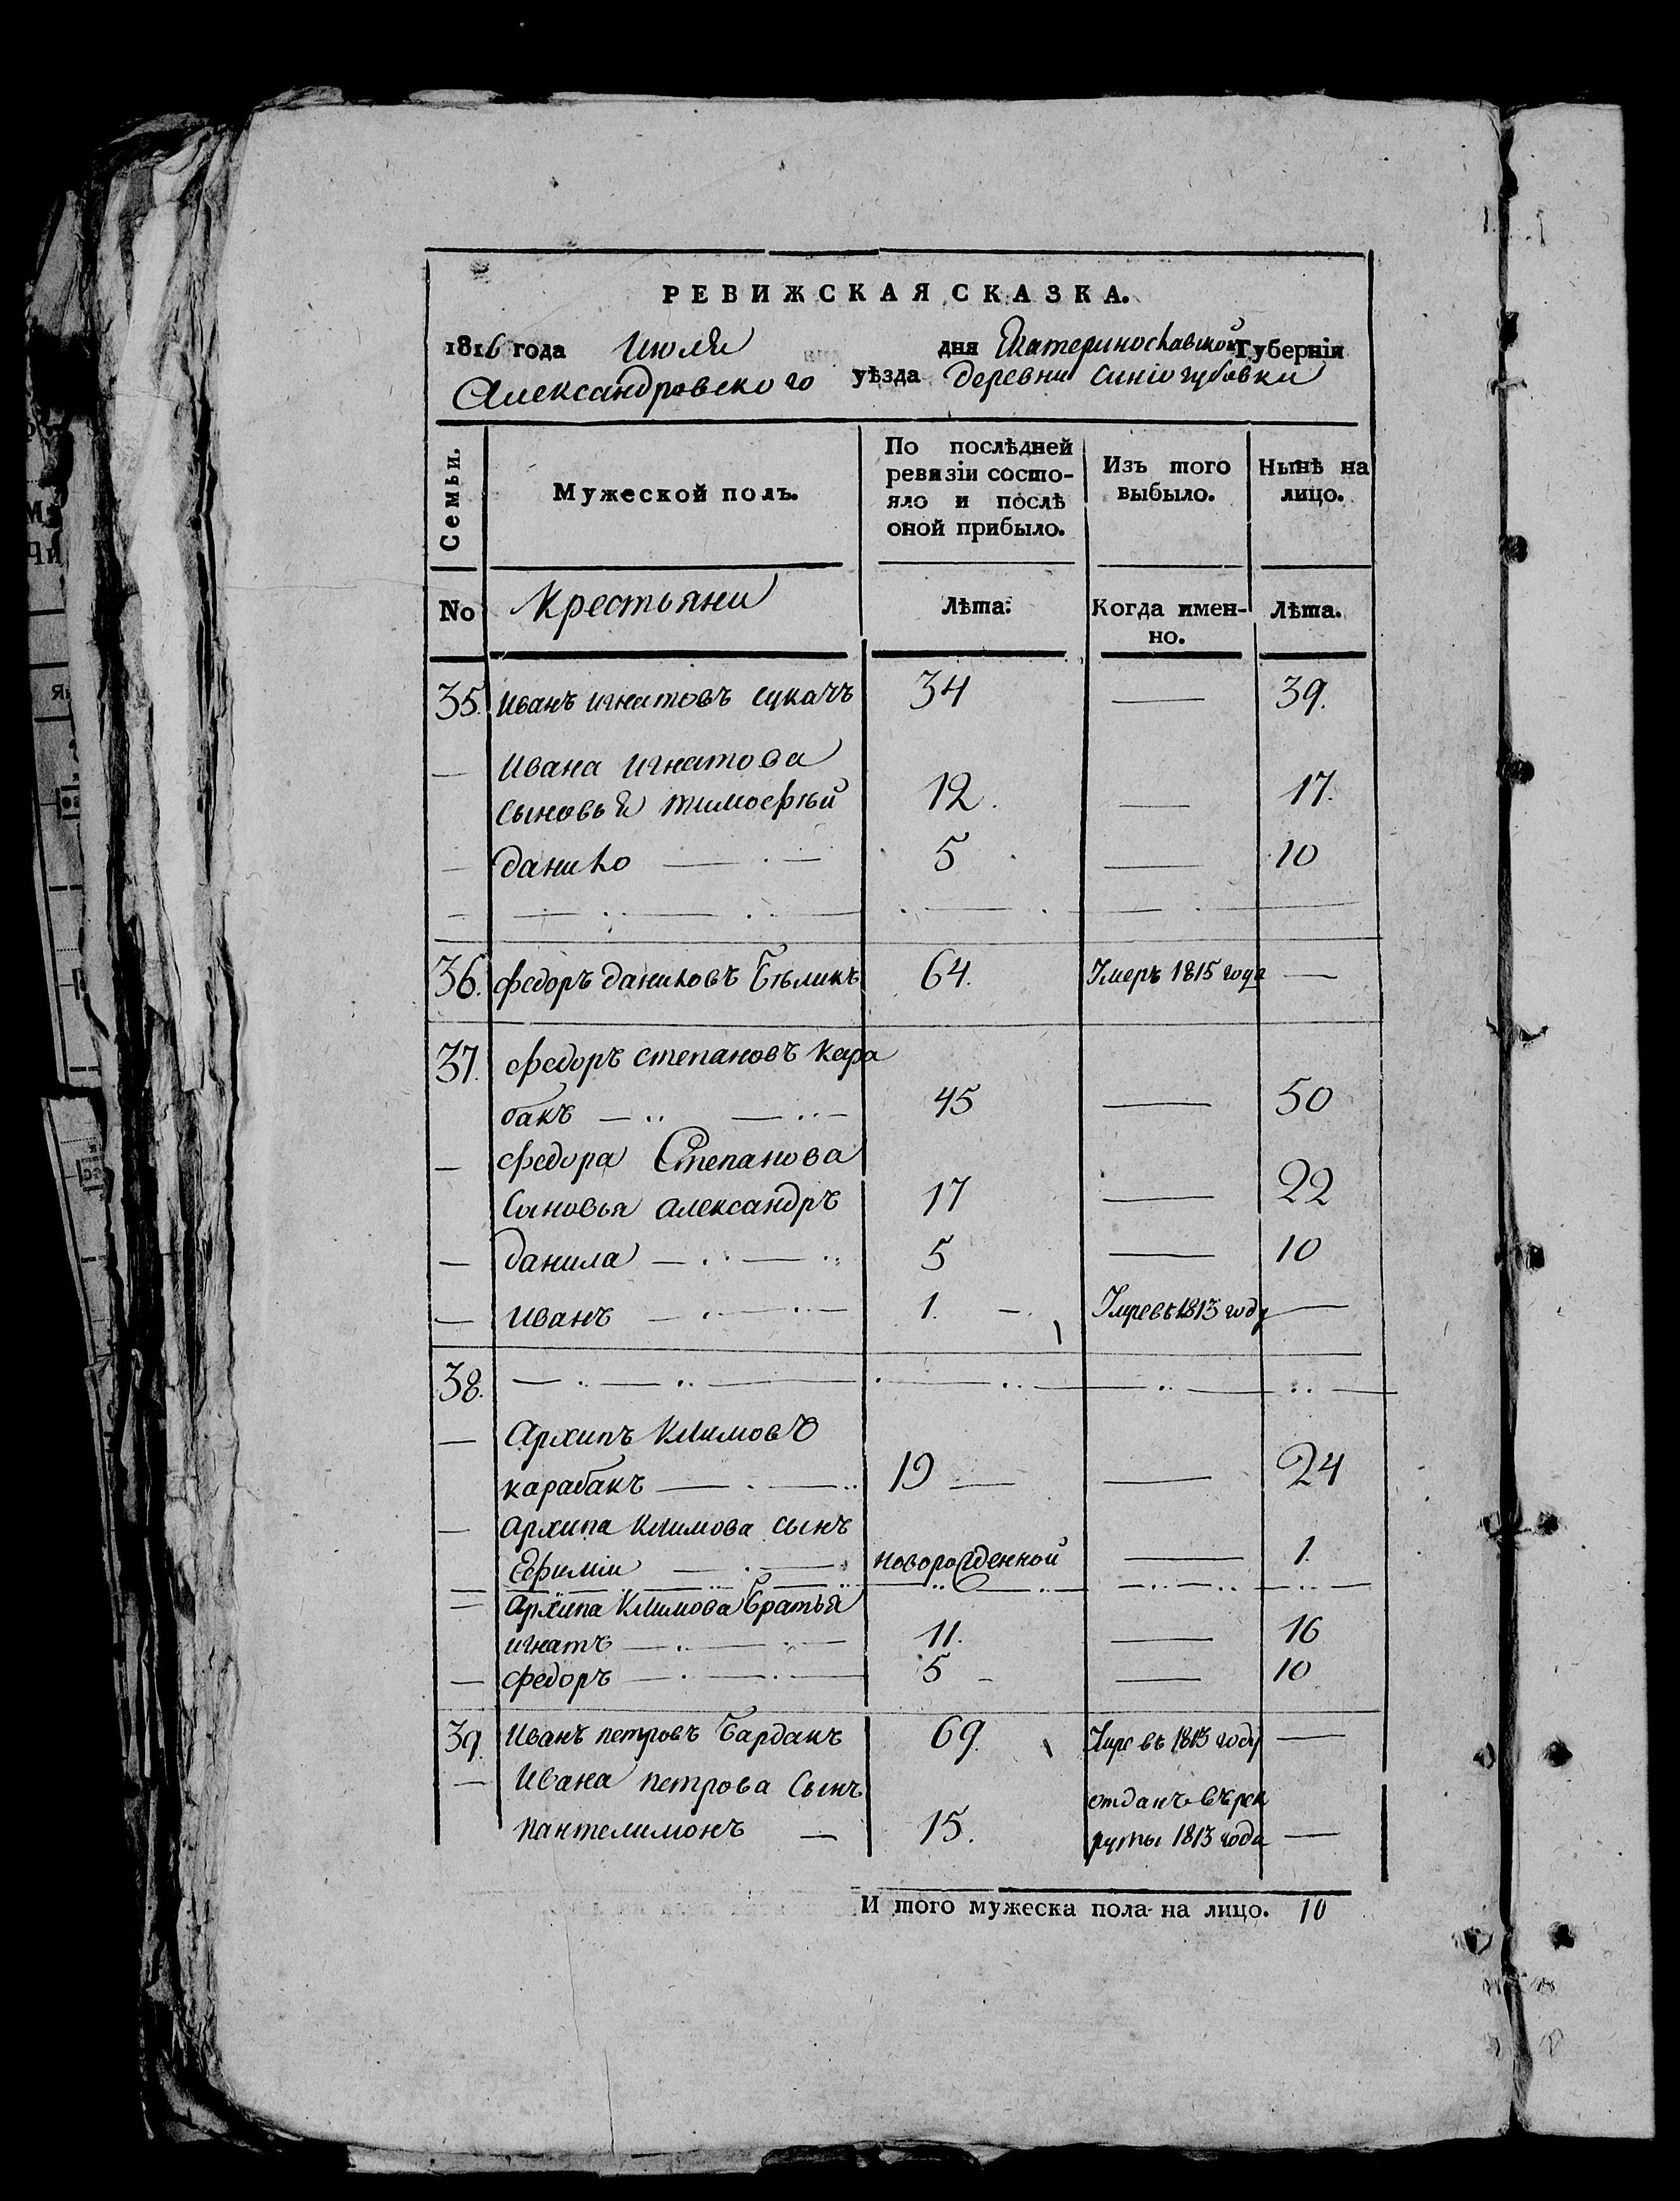 РЕВИЖСКАЯ СКАЗКА.
1816 года Июля дня Екатеринославской Губерніи
Александровского уѣзда деревни Синіогубовки
Семьи.
Мужеской полъ.
По послѣдней ревизіи состо-
яло и послѣ
оной прибыло.
Изъ того
выбыло.
Нынѣ на
лицо.
No Крестьяни Лѣта: Когда имен-
но. Лѣта.
35. Иванъ игнатовъ сукачъ 34 — 39.
— Ивана игнатова
сыновья тимофѣй 12. — 17.
— данило — 5 — 10
36. федоръ даниловъ Бѣликъ 64. Умеръ 1815 года —
37. федоръ степановъ кара
бакъ — 45 — 50
— федора Степанова
Сыновья александръ 17 — 22
— данила — 5 — 10
— иванъ — 1. — Умре въ 1813 году —
38.
— Архипъ Климовъ
карабакъ — 19 — — 24
— архипа климова сынъ
Ефимій — новорожденной — 1.
архипа Климова Братья
игнатъ — 11. — 16
— федоръ — 5 — — 10
39. Иванъ петровъ Бардакъ 69. Умре въ 1813 году —
— Ивана петрова Сынъ
пантелимонъ — 15. отданъ въ рек
руты 1813 года —
И того мужеска пола на лицо. 10